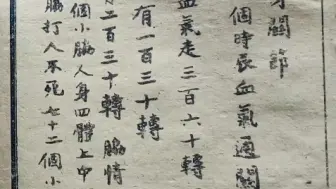 關節
個時辰血氣通關
血氣走三百六十轉
有一百三十轉
二百三十轉腦情
個小腦人身四體上中
腦打人不死七十二個小